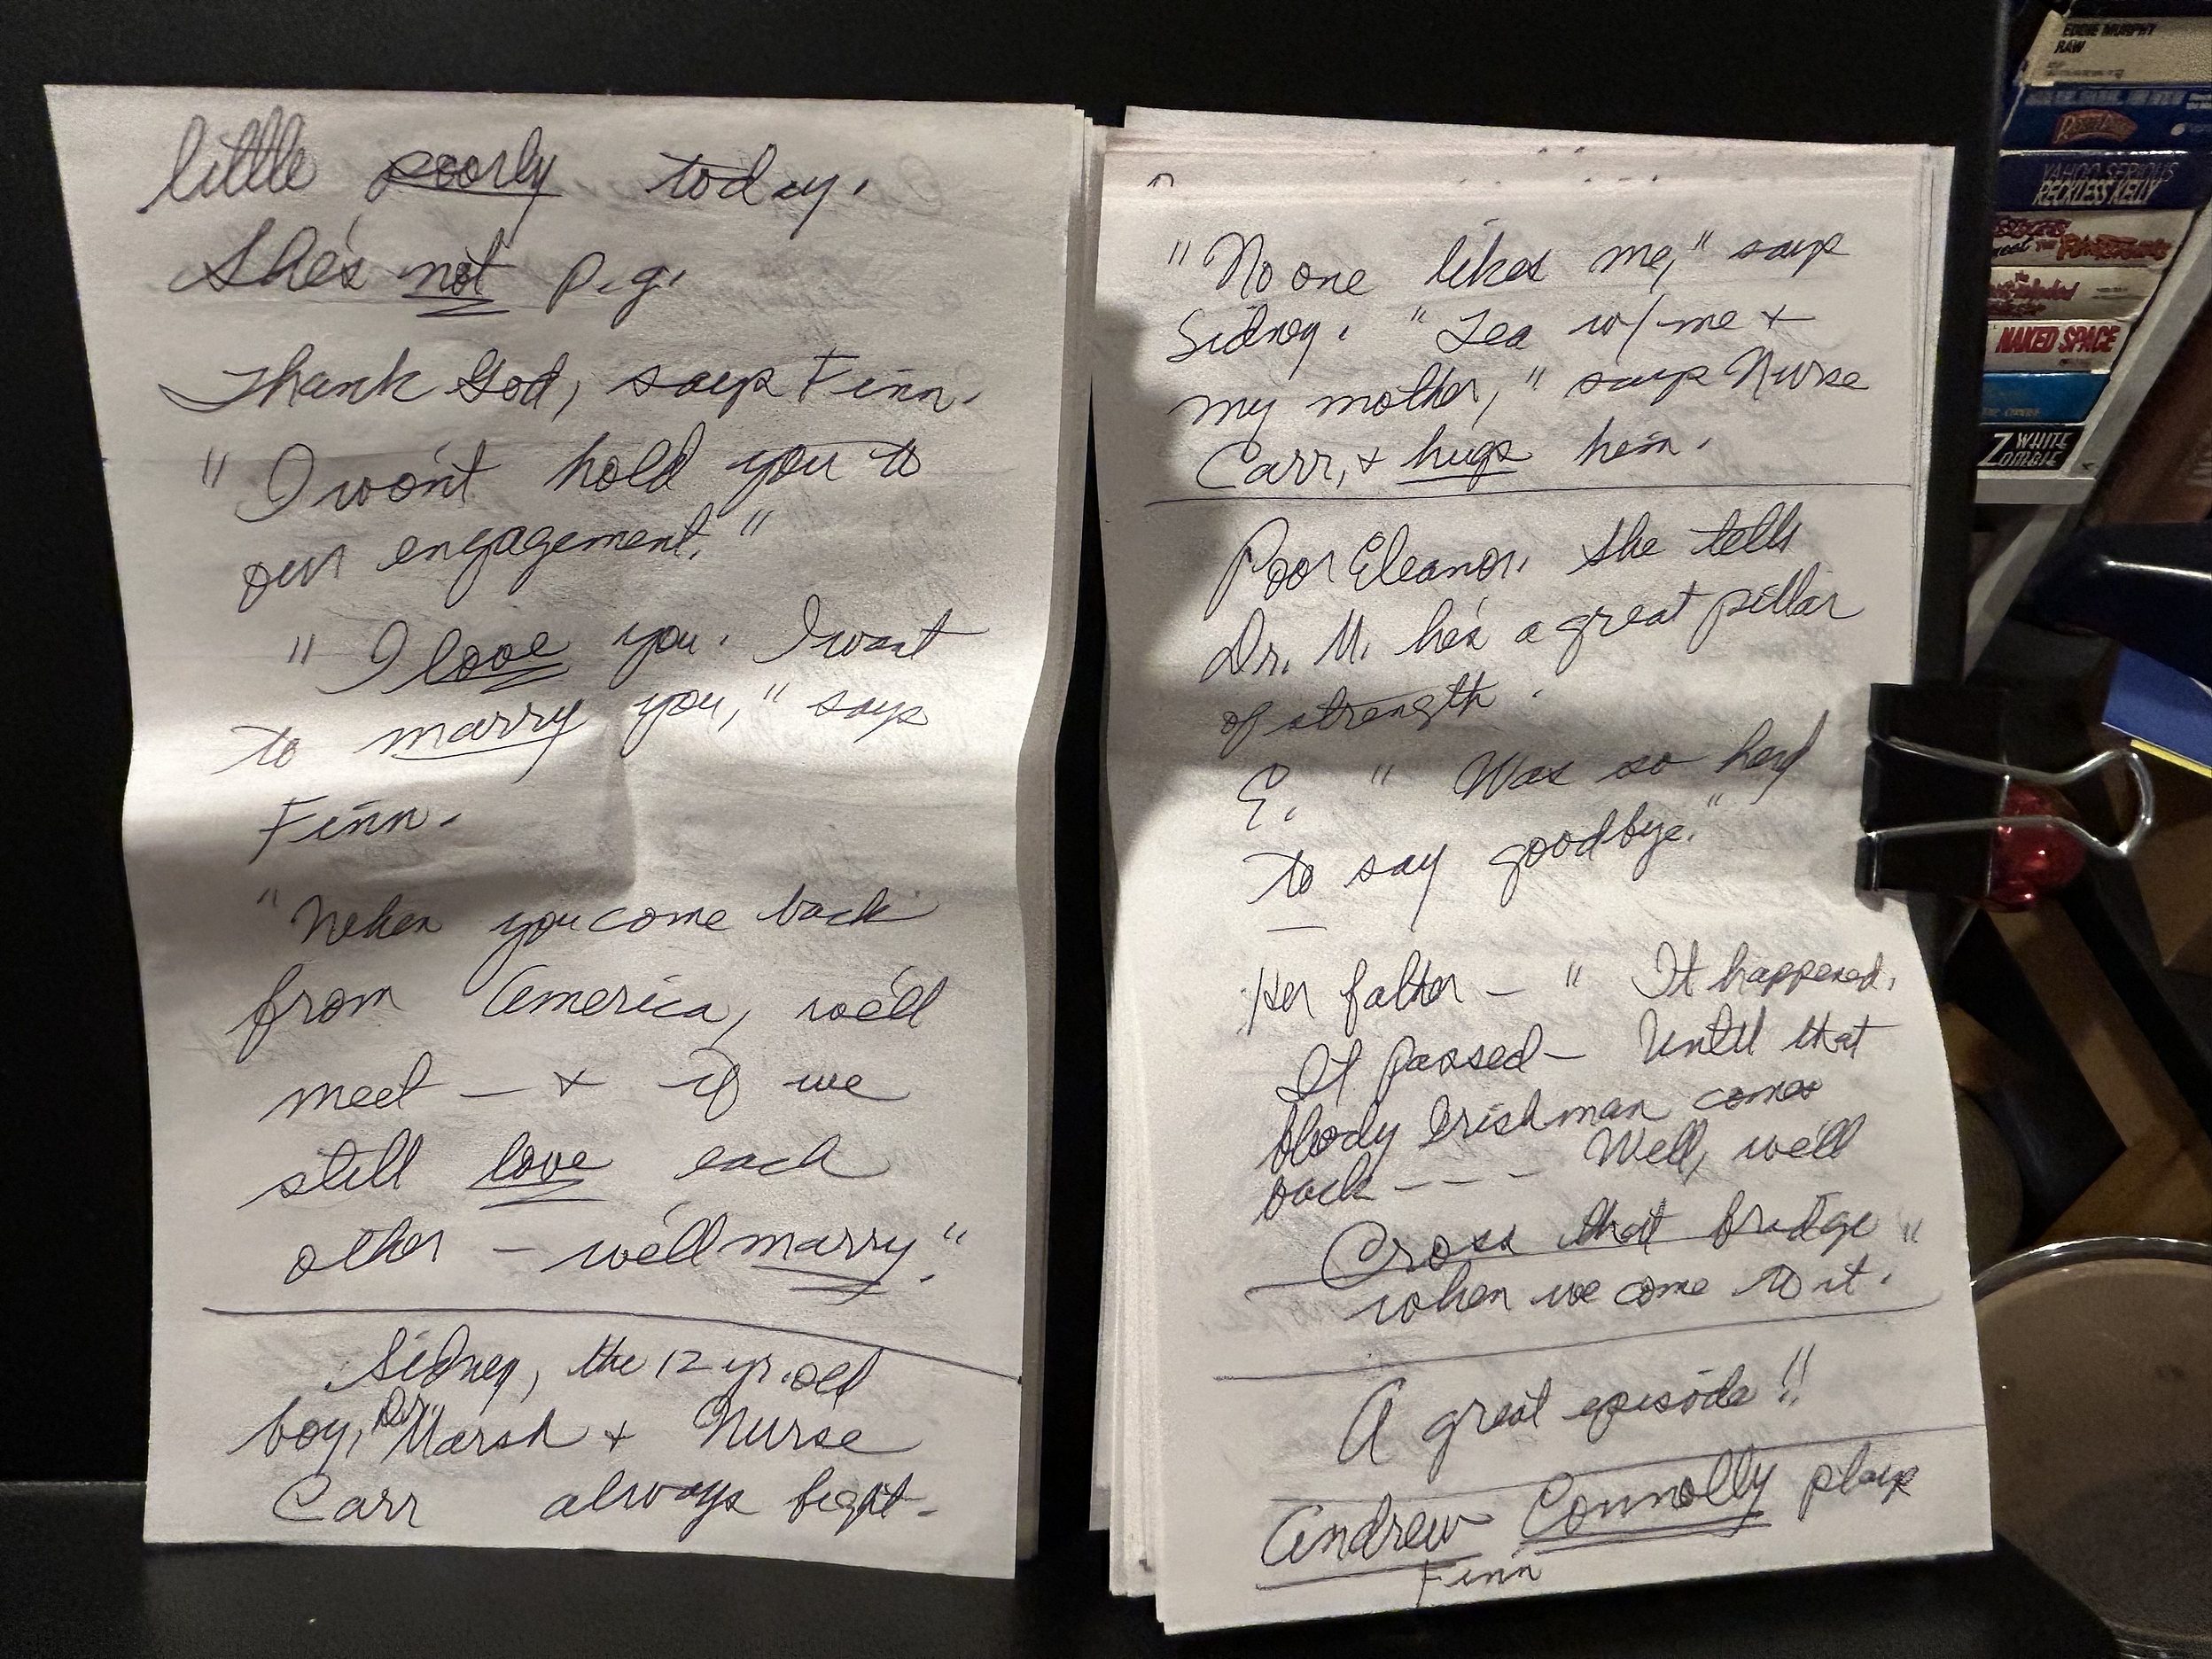 little poorly today.
She's not p.g.
Thank God, says Finn.
" I won't hold you to
our engagement."
" I love you. I want
to marry you," says
Finn.
"When you come back
from America, we'll
meet — + if we
still love each
other — we'll marry."
Sidney, the 12 yr. old
boy, Dr. Marsh + Nurse
Carr always fight.
"No one likes me," says
Sidney. "Tea w/ me +
my mother," says Nurse
Carr, + hugs him.
Poor Eleanor. She tells
Dr. M. he's a great pillar
of strength.
E. " Was so hard
to say goodbye."
Her father — " It happened.
It passed — Until that
bloody Irishman comes
back - - - Well, we'll
Cross that bridge "
when we come to it.
A great episode!!
Andrew Connolly plays
Finn
EDDIE MURPHY
RAW
YAHOO SERIOUS
RECKLESS KELLY
NAKED SPACE
WHITE
ZOMBIE